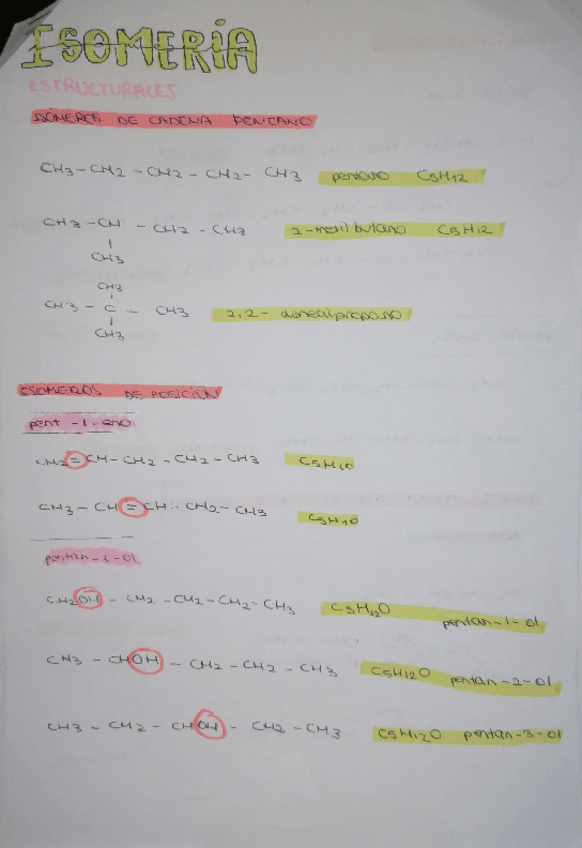 ISOMERÍA
ESTRUCTURALES
ISÓMEROS DE CADENA PENTANO
CH3-CH2 - CH2 - CH2- CH3 pentano C5H12
CH3 - CH - CH2 - CH3 2-metilbutano C5H12
|
CH3
CH3
|
CH3 - C - CH3 2,2- dimetilpropano
|
CH3
ISOMEROS DE POSICIÓN
pent -1-eno
CH2=CH-CH2 - CH2 - CH3 C5H10
CH3 - CH=CH - CH2- CH3 C5H10
pentan-1-ol
CH2OH - CH2 - CH2-CH2-CH3 C5H12O pentan-1-ol
CH3 - CHOH - CH2 - CH2 - CH3 C5H12O pentan-2-ol
CH3 - CH2 - CHOH - CH2 - CH3 C5H12O pentan-3-ol